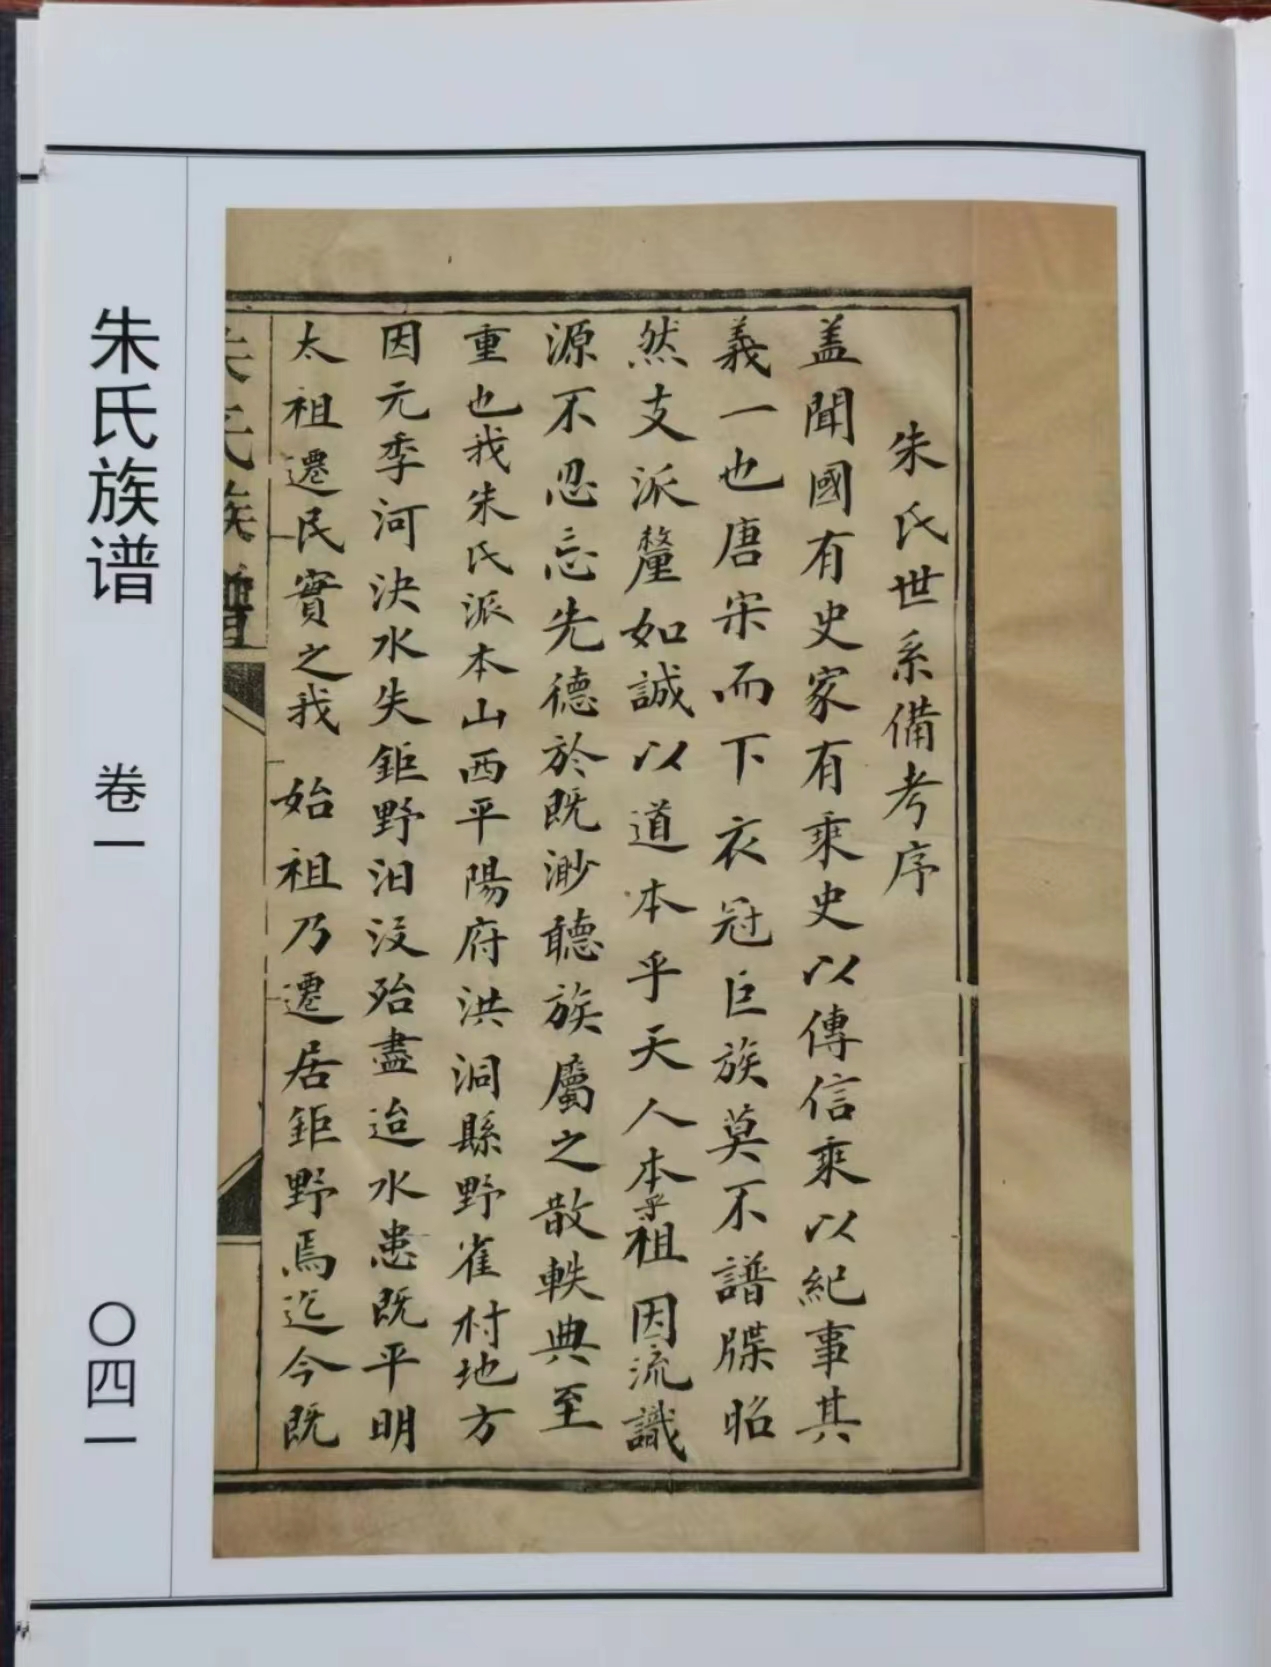 朱氏世系備考序
盖聞國有史家有乘史以傳信乘以紀事其
義一也唐宋而下衣冠巨族莫不譜牒昭
然支派釐如誠以道本乎天人本乎祖因流識
源不忍忘先德於既渺聽族屬之散軼典至
重也我朱氏派本山西平陽府洪洞縣野雀村地方
因元季河决水失鉅野汩没殆盡迨水患既平明
太祖遷民實之我 始祖乃遷居鉅野焉迄今既
朱氏族譜
朱氏族谱 卷一 〇四一